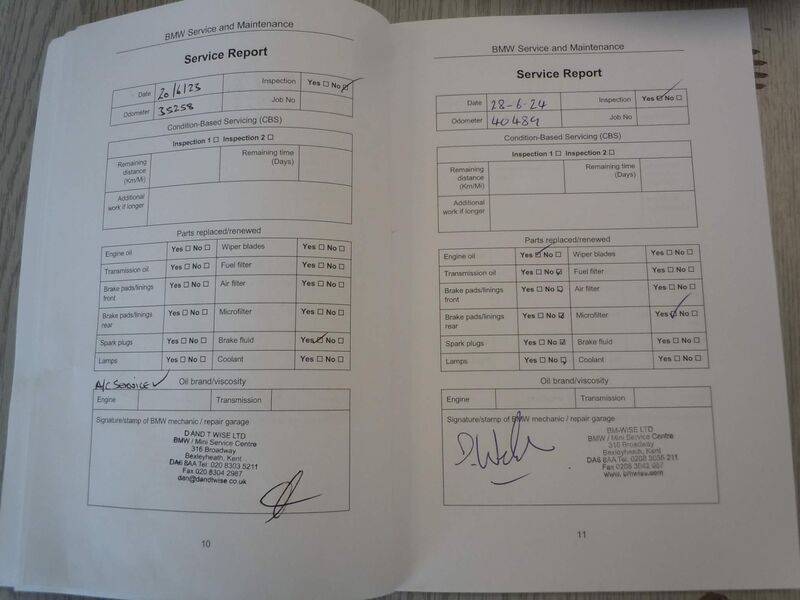 BMW Service and Maintenance
Service Report
Date 20/6/23 Inspection Yes ☐ No ☑
Odometer 35258 Job No
Condition-Based Servicing (CBS)
Inspection 1 ☐ Inspection 2 ☐
Remaining distance (Km/Mi) Remaining time (Days)
Additional work if longer
Parts replaced/renewed
Engine oil Yes ☐ No ☐ Wiper blades Yes ☐ No ☐
Transmission oil Yes ☐ No ☐ Fuel filter Yes ☐ No ☐
Brake pads/linings front Yes ☐ No ☐ Air filter Yes ☐ No ☐
Brake pads/linings rear Yes ☐ No ☐ Microfilter Yes ☐ No ☐
Spark plugs Yes ☐ No ☐ Brake fluid Yes ☑ No ☐
Lamps Yes ☐ No ☐ Coolant Yes ☐ No ☐
A/C SERVICE ✓ Oil brand/viscosity
Engine Transmission
Signature/stamp of BMW mechanic / repair garage
D AND T WISE LTD
BMW / Mini Service Centre
316 Broadway
Bexleyheath, Kent
DA6 8AA Tel: 020 8303 5211
Fax 020 8304 2987
dan@dandtwise.co.uk
10
BMW Service and Maintenance
Service Report
Date 28-6-24 Inspection Yes ☑ No ☐
Odometer 40489 Job No
Condition-Based Servicing (CBS)
Inspection 1 ☐ Inspection 2 ☐
Remaining distance (Km/Mi) Remaining time (Days)
Additional work if longer
Parts replaced/renewed
Engine oil Yes ☑ No ☐ Wiper blades Yes ☐ No ☐
Transmission oil Yes ☐ No ☑ Fuel filter Yes ☐ No ☐
Brake pads/linings front Yes ☐ No ☑ Air filter Yes ☐ No ☐
Brake pads/linings rear Yes ☐ No ☑ Microfilter Yes ☑ No ☐
Spark plugs Yes ☐ No ☑ Brake fluid Yes ☐ No ☐
Lamps Yes ☐ No ☑ Coolant Yes ☐ No ☐
Oil brand/viscosity
Engine Transmission
Signature/stamp of BMW mechanic / repair garage
BM-WISE LTD
BMW / Mini Service Centre
316 Broadway
Bexleyheath, Kent
DA6 8AA Tel: 0208 3035 211
Fax 0208 3042 987
www. bmwise.com
11